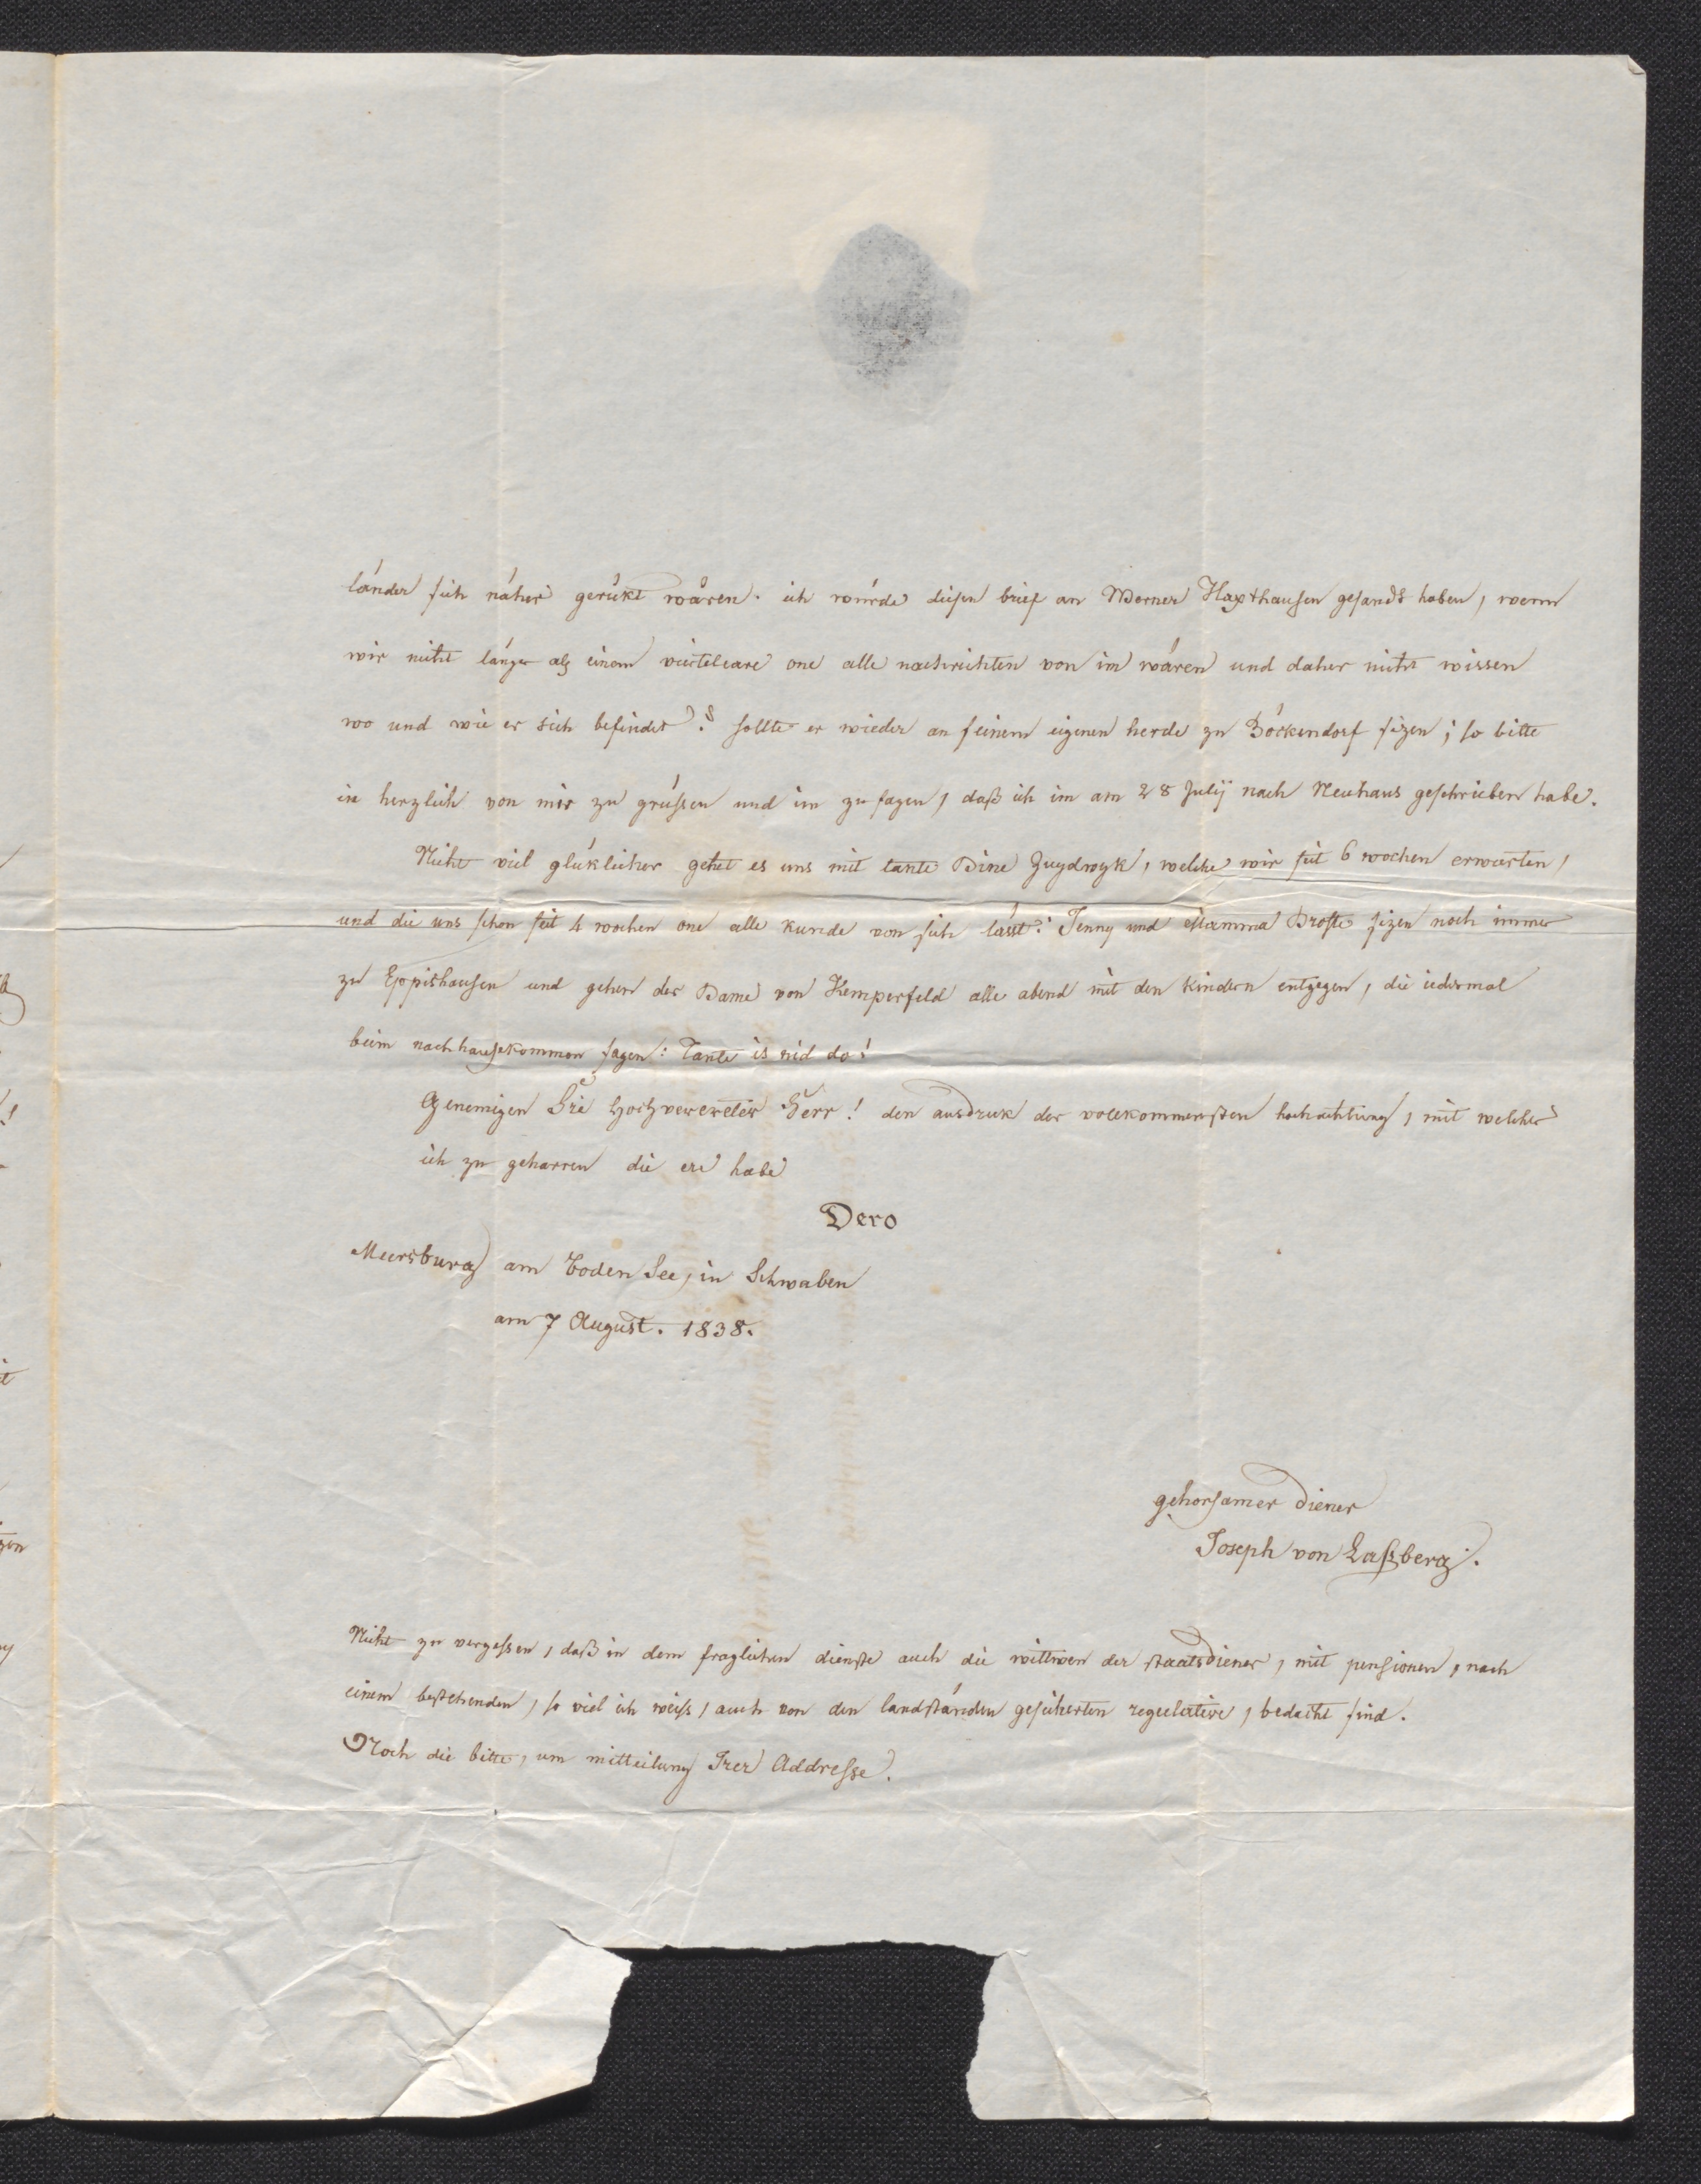 länder sich näher gerükt wären. ich würde diesen brief an Werner Haxthausen gesandt haben, wenn
wir nicht länger als einem vierteliare one alle nachrichten von im wären und daher nicht wissen
wo und wie er sich befindet? sollte er wieder an seinem eigenen herde zu Böckendorf sizen; so bitte
in herzlich von mir zu grüssen und im zu sagen, daß ich im am 28 Julÿ nach Neuhaus geschrieben habe.
Nicht viel glüklicher gehet es uns mit tante Dine Zuydwyk, welche wir seit 6 wochen erwarten,
und die uns schon seit 4 wochen one alle kunde von sich lässt: Jenny und Mamma Droste sizen noch immer
zu Eppishausen und gehen der Dame von Kemperfeld alle abend mit den kindern entgegen, die iedesmal
beim nachhausekommen sagen: Tante is nid do!
Genemigen Sie Hochvererter Herr! den ausdruk der vollkommensten hochachtung, mit welcher
ich zu geharren die ere habe
Dero
Meersburg am Boden See, in Schwaben
am 7 August. 1838.
gehorsamer Diener
Joseph von Laßberg.
Nicht zu vergessen, daß in dem fraglichen dienste auch die wittwen der staatsdiener, mit pensionen, nach
einem bestehenden, so viel ich weiss, auch von den landständen gesicherten regulative, bedacht sind.
Noch die bitte, um mitteilung Irer Addresse.